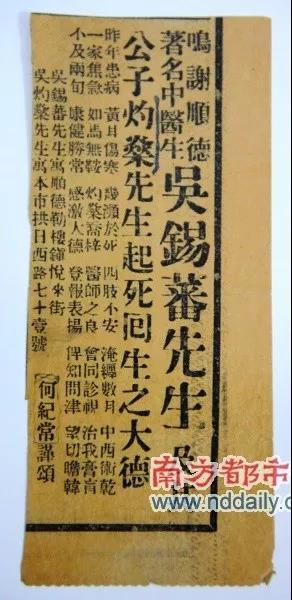 鳴謝順德
著名中醫生
吳錫蕃先生及其
公子灼燊先生起死回生之大德
昨年患病 黃耳傷寒 幾瀕於死 四肢不安 淹纏數月 中西術乾
一家焦急 如馬無鞍 灼燊喬梓 醫師之良 會同診視 治我膏肓
不及兩旬 康健勝常 感激大德 登報表揚 俾知問津 望切瞻韓
吳錫蕃先生寓順德勒樓鎮悅來街
吳灼燊先生寓本市拱日西路七十壹號
何紀常謹頌
南方都市
www.nddaily.c